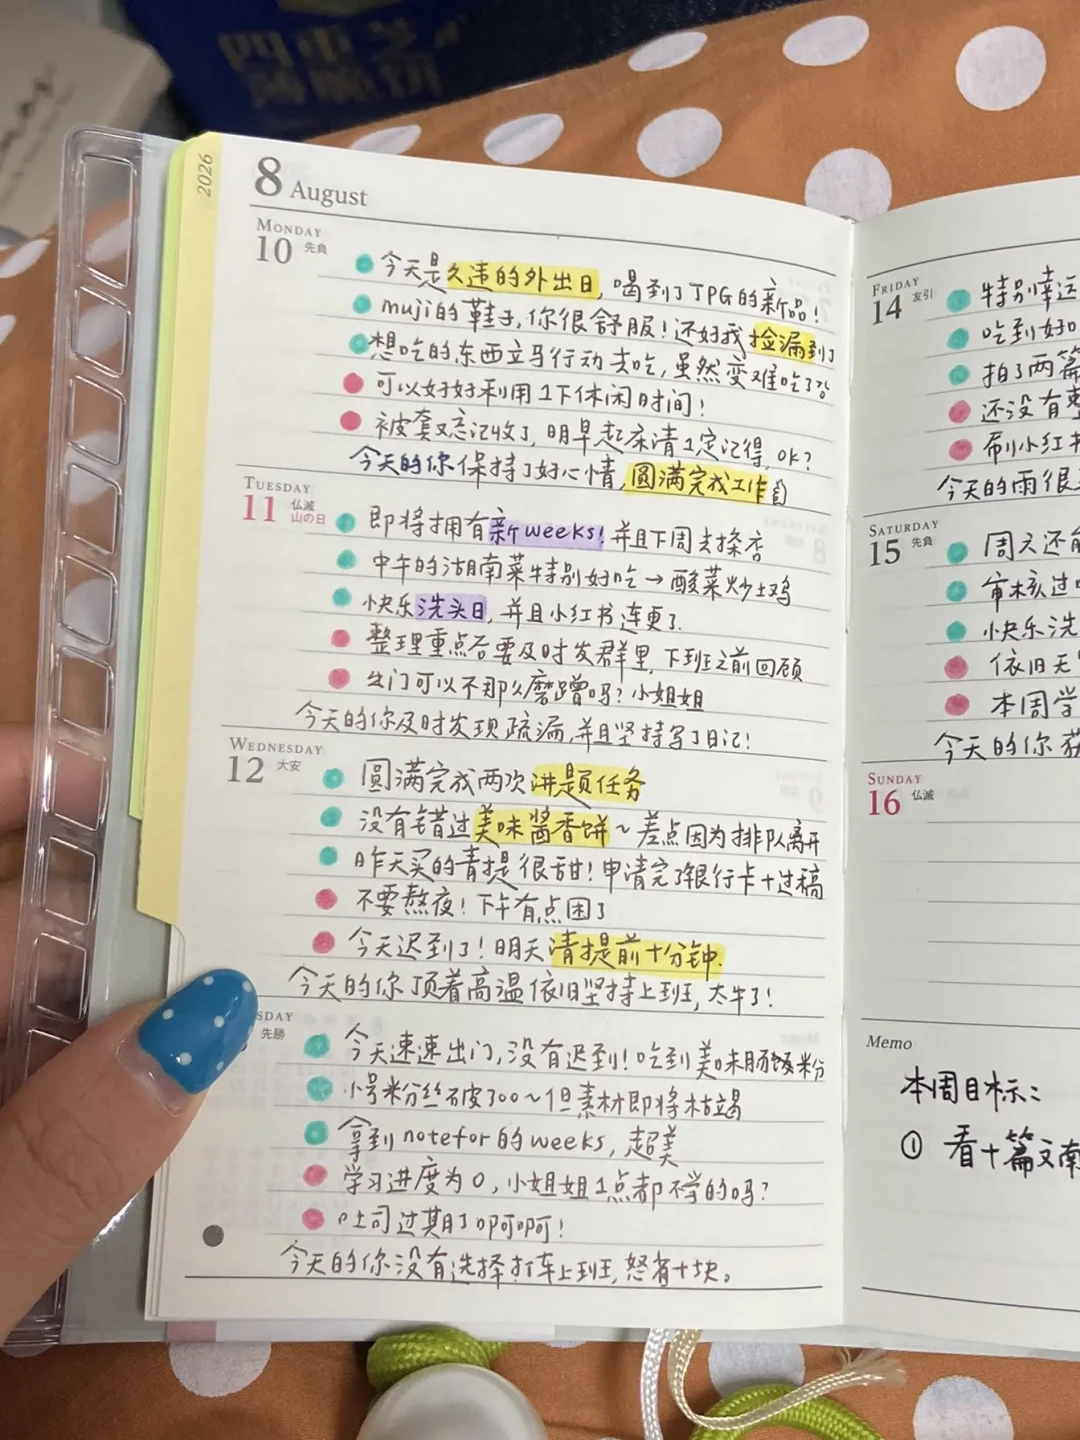 2026
8 August
MONDAY
10 先負
今天是久违的外出日,喝到了JPG的新品!
muji的鞋子,你很舒服!还好我捡漏到了
想吃的东西立马行动去吃,虽然变难吃了
可以好好利用1下休闲时间!
被套又忘记收了,明早起床请1定记得,OK?
今天的你保持了好心情,圆满完成工作
TUESDAY
11 仏滅
山の日
即将拥有新weeks!并且下周去探店
中午的湖南菜特别好吃→酸菜炒土鸡
快乐洗头日,并且小红书连更了.
整理重点后要及时发群里,下班之前回顾
出门可以不那么磨蹭吗?小姐姐
今天的你及时发现疏漏,并且坚持写了日记!
WEDNESDAY
12 大安
圆满完成两次讲题任务
没有错过美味酱香饼~差点因为排队离开
昨天买的青提很甜!申请完了银行卡+过稿
不要熬夜!下午有点困了
今天迟到了!明天请提前十分钟.
今天的你顶着高温依旧坚持上班,太牛了!
SDAY
先勝
今天速速出门,没有迟到!吃到美味肠粉
小号粉丝破300~但素材即将枯竭
拿到notefor的weeks,超美
学习进度为0,小姐姐1点都不学的吗?
吐司过期了啊啊啊!
今天的你没有选择打车上班,怒省十块。
FRIDAY
14 友引
特别幸运
吃到好
拍了两篇
还没有
刷小红书
今天的雨很
SATURDAY
15 先負
周六还能
审核过
快乐洗
依旧无
本周学
今天的你
SUNDAY
16 仏滅
Memo
本周目标:
① 看十篇文献